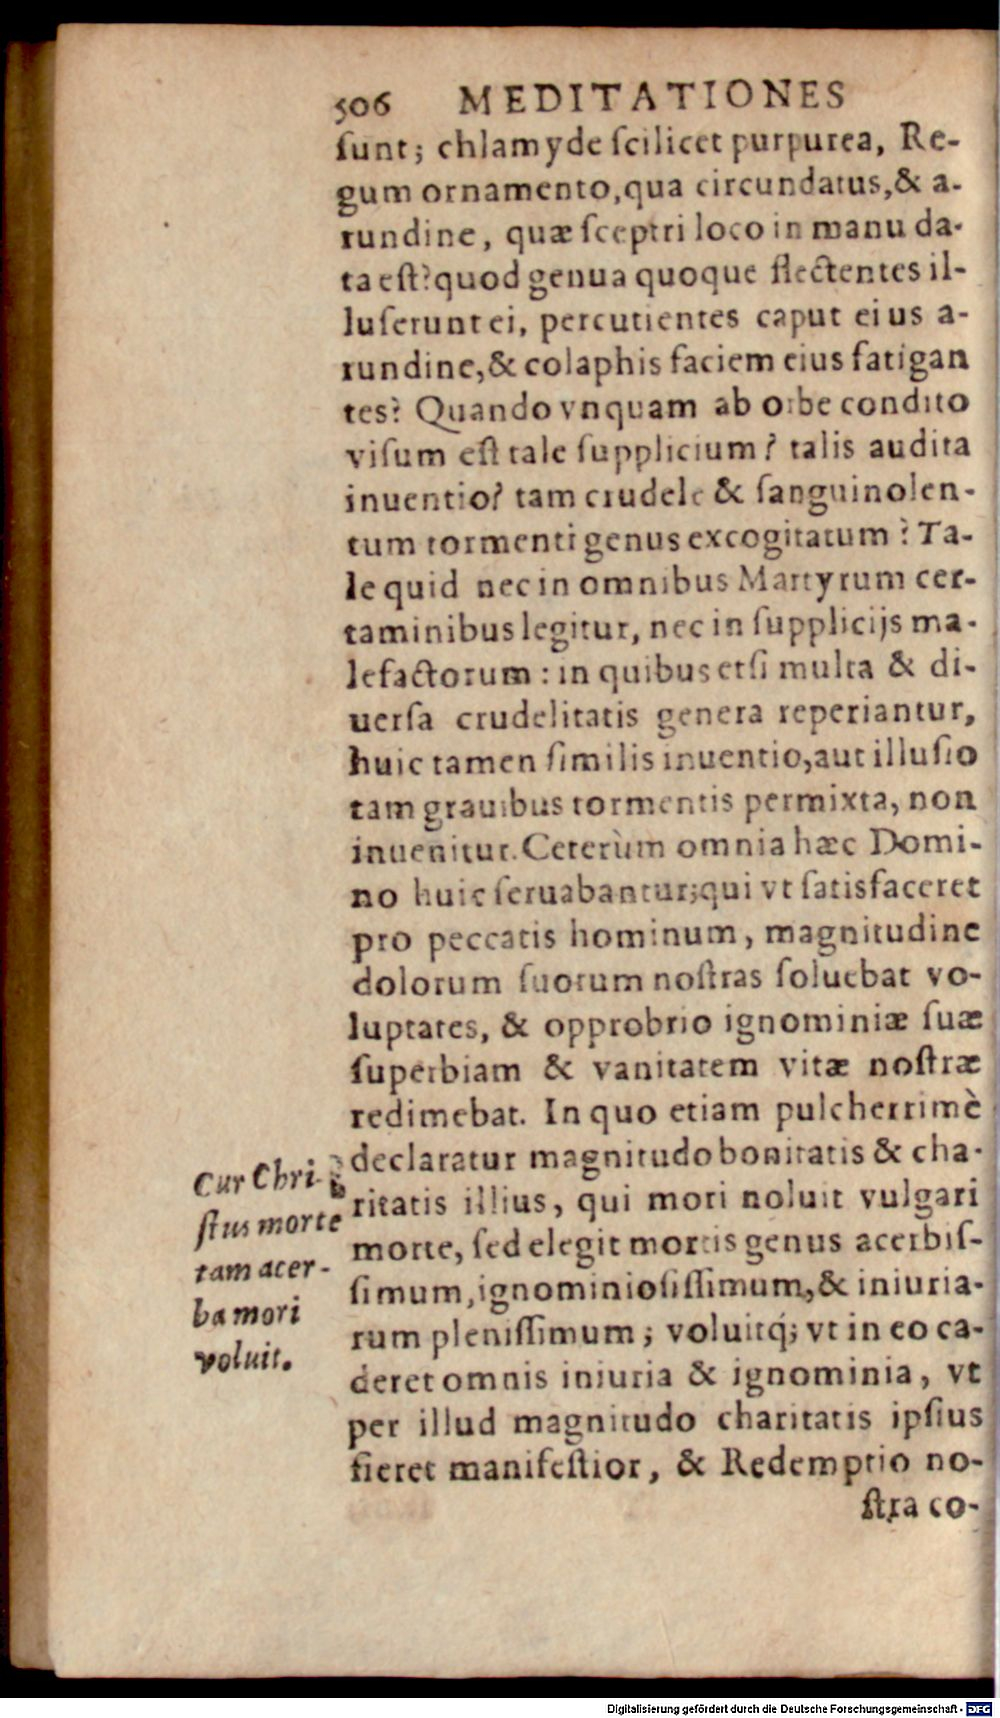 506 MEDITATIONES
ſunt; chlamyde ſcilicet purpurea, Re-
gum ornamento, qua circundatus, & a-
rundine, quæ ſceptri loco in manu da-
ta eſt? quod genua quoque flectentes il-
luſerunt ei, percutientes caput eius a-
rundine, & colaphis faciem eius fatigan
tes? Quando vnquam ab orbe condito
viſum eſt tale ſupplicium? talis audita
inuentio? tam crudele & ſanguinolen-
tum tormenti genus excogitatum? Ta-
le quid nec in omnibus Martyrum cer-
taminibus legitur, nec in ſupplicijs ma-
lefactorum: in quibus etſi multa & di-
uerſa crudelitatis genera reperiantur,
huic tamen ſimilis inuentio, aut illuſio
tam grauibus tormentis permixta, non
inuenitur. Ceterùm omnia hæc Domi-
no huic ſeruabantur; qui vt ſatisfaceret
pro peccatis hominum, magnitudine
dolorum ſuorum noſtras ſoluebat vo-
luptates, & opprobrio ignominiæ ſuæ
ſuperbiam & vanitatem vitæ noſtræ
redimebat. In quo etiam pulcherrimè
declaratur magnitudo bonitatis & cha-
ritatis illius, qui mori noluit vulgari
morte, ſed elegit mortis genus acerbiſ-
ſimum, ignominioſiſſimum, & iniuria-
rum pleniſſimum; voluitq́; vt in eo ca-
deret omnis iniuria & ignominia, vt
per illud magnitudo charitatis ipſius
fieret manifeſtior, & Redemptio no-
ſtra co-
Cur Chri-
ſtus morte
tam acer-
ba mori
voluit.
Digitalisierung gefördert durch die Deutsche Forschungsgemeinschaft - DFG